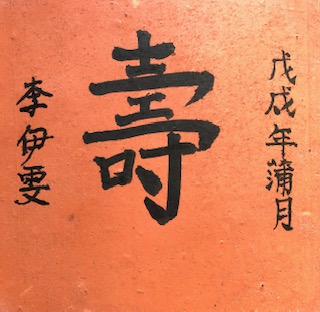 戊戌年蒲月
壽
李伊雯